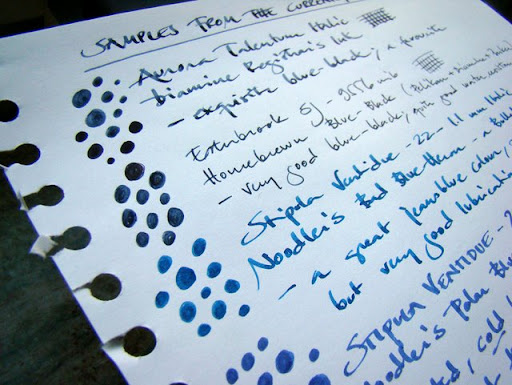 SAMPLES FROM THE CURRENT
Aurora Talentum Italic
Diamine Registrar's Ink
- exquisite blue-black, a favourite
Esterbrook SJ - 9556 nib
Homebrewn Blue-Black (Pelikan + Diamine
- very good blue-black, with good water
Stipula Ventidue - 22 - 1.1 mm Italic
Noodler's Bad Blue Heron - a
- a great jeans blue colour,
but very good lubrication
STIPULA VENTIDUE - 2
Noodler's Polar Blue
cold